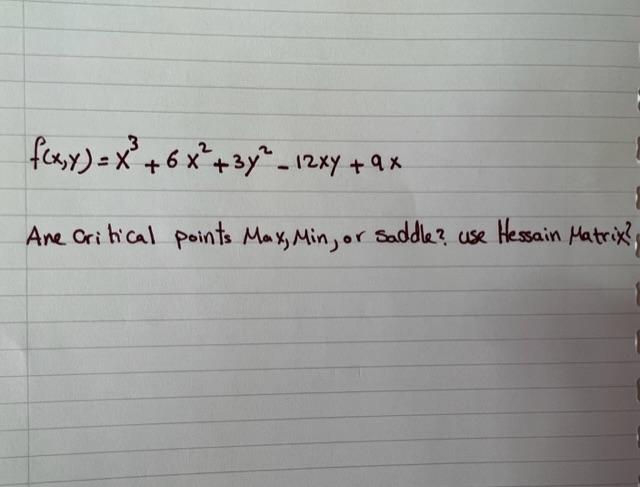 f(x,y) = x³ + 6x² + 3y² - 12xy + 9x
Are critical points Max, Min, or saddle? use Hessain Matrix?